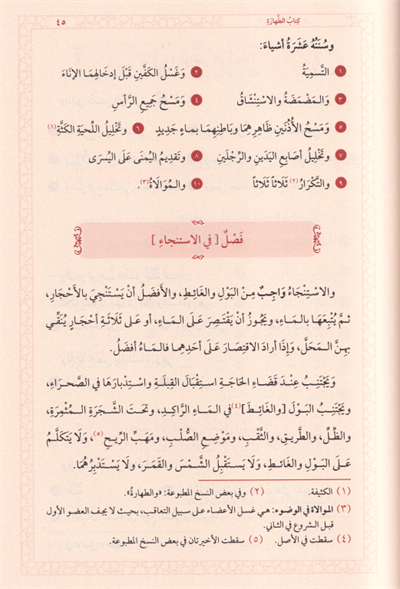 كِتَابُ الطَّهَارَةِ ٤٥
وسُنَنُهُ عَشَرَةُ أشياءَ:
١ التَّسمِيَةُ ٢ وَغَسْلُ الكَفَّينِ قَبْلَ إدخَالِهِمَا الإنَاءَ
٣ وَالمَضْمَضَةُ والاسْتِنْشَاقُ ٤ وَمَسْحُ جَمِيعِ الرَّأسِ
٥ وَمَسْحُ الأُذُنَينِ ظَاهِرِهِمَا وبَاطِنِهِمَا بماءٍ جَدِيدٍ ٦ وتَخْلِيلُ اللِّحيَةِ الكَثَّةِ(١)
٧ وتَخْلِيلُ أصَابِعِ اليَدَينِ والرِّجْلَينِ ٨ وتَقدِيمُ اليُمنَى عَلَى اليُسرَى
٩ والتَّكرَارُ(٢) ثَلَاثاً ثَلَاثاً ١٠ والمُوَالَاةُ(٣).
فَصْلٌ [في الاستنجاءِ]
والاسْتِنْجَاءُ وَاجِبٌ مِنَ البَوْلِ والغَائِطِ، والأفضَلُ أنْ يَسْتَنْجِيَ بالأحْجَارِ،
ثمَّ يُتْبِعَهَا بالمَاءِ، ويَجُوزُ أنْ يَقْتَصِرَ عَلَى المَاءِ، أو عَلى ثَلَاثَةِ أحْجَارٍ يُنَقِّي
بِهِنَّ المَحَلَّ، وَإذَا أرادَ الاقتِصَارَ عَلَى أحَدِهِما فالمَاءُ أفضَلُ.
ويَجْتَنِبُ عِنْدَ قَضَاءِ الحَاجَةِ استِقْبَالَ القِبلَةِ واستِدْبارَهَا في الصَّحرَاءِ،
ويَجْتَنِبُ البَوْلَ [والغَائِطَ](٤) في المَاءِ الرَّاكِدِ، وتَحتَ الشَّجَرَةِ المُثْمِرَةِ،
والظِّلِّ، والطَّريقِ، والثَّقْبِ، ومَوْضِعِ الصُّلْبِ، ومَهَبِّ الرِّيحِ(٥)، وَلَا يَتكَلَّمُ
عَلَى البَوْلِ والغَائطِ، وَلَا يَسْتَقْبِلُ الشَّمْسَ وَالقَمَرَ، ولَا يَسْتَدْبِرُهُمَا.
(١) الكثيفة. (٢) وفي بعض النسخ المطبوعة: «والطهارة».
(٣) الموالاة في الوضوء: هي غسل الأعضاء على سبيل التعاقب، بحيث لا يجف العضو الأول
قبل الشروع في الثاني.
(٤) سقطت في الأصل. (٥) سقطت الأخيرتان في بعض النسخ المطبوعة.